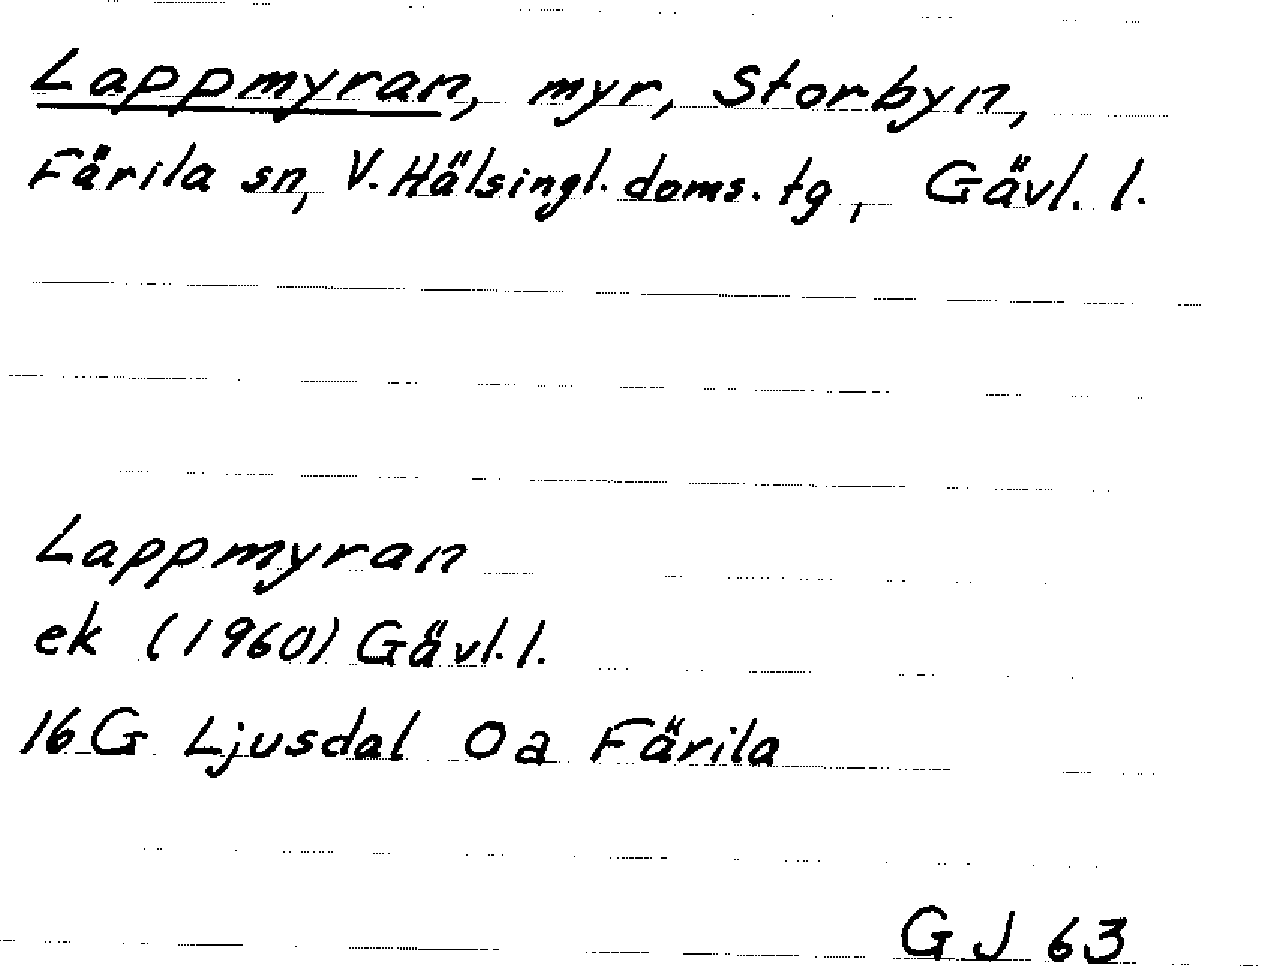 Lappmyran, myr, Storbyn,
Färila sn, V. Hälsingl. doms. tg, Gävl. l.
Lappmyran
ek (1960) Gävl. l.
16G Ljusdal 0a Färila
GJ 63